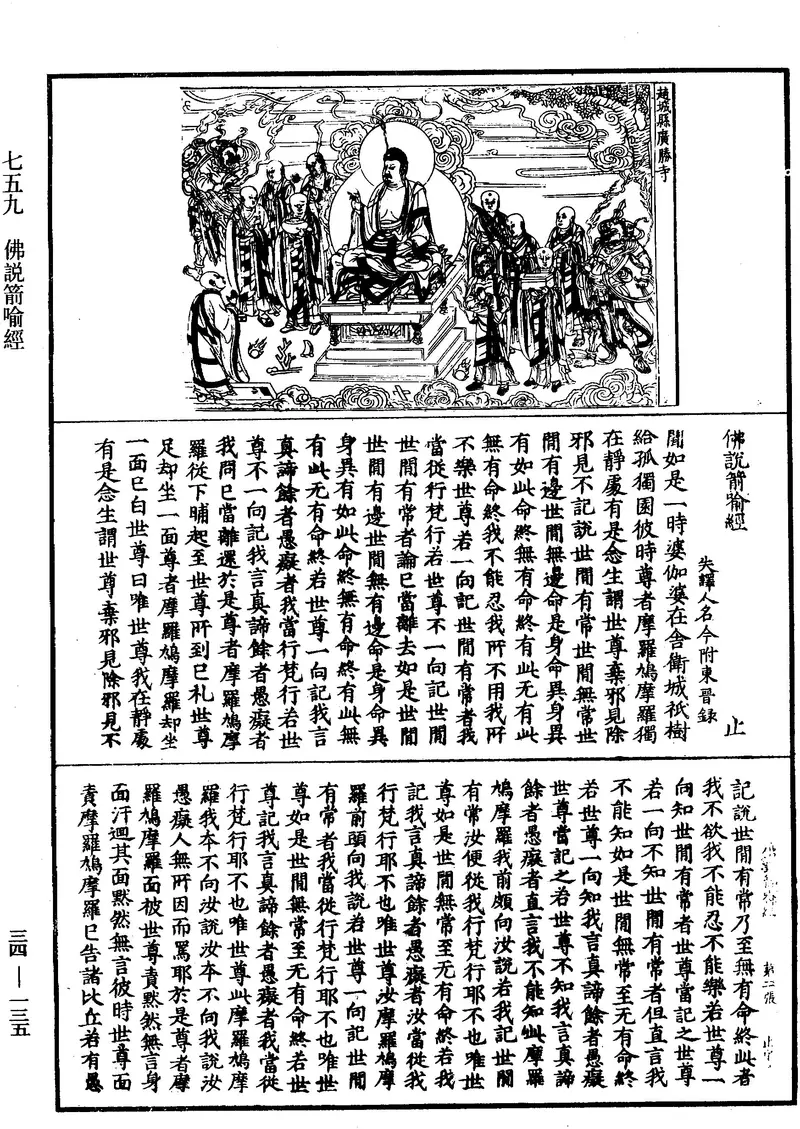 七五九　佛説箭喻經
三四—一三五
趙城縣廣勝寺
佛說箭喻經
失譯人名今附東晉錄　止
聞如是一時婆伽婆在舍衛城祇樹
給孤獨園彼時尊者摩羅鳩摩羅獨
在靜處有是念生謂世尊棄邪見除
邪見不記說世間有常世間無常世
間有邊世間無邊命是身命異身異
有如此命終無有命終有此无有此
無有命終我不能忍我所不用我所
不樂世尊若一向記世間有常者我
當從行梵行若世尊不一向記世間
世間有常者論已當離去如是世間
世間有邊世間無有邊命是身命異
身異有如此命終無有命終有此無
有此无有命終若世尊一向記我言
真諦餘者愚癡者我當行梵行若世
尊不一向記我言真諦餘者愚癡者
我問已當離還於是尊者摩羅鳩摩
羅從下晡起至世尊所到已礼世尊
足却坐一面尊者摩羅鳩摩羅却坐
一面已白世尊曰唯世尊我在靜處
有是念生謂世尊棄邪見除邪見不
第二張
記說世間有常乃至無有命終此者
我不欲我不能忍不能樂若世尊一
向知世間有常者世尊當記之世尊
若一向不知世間有常者但直言我
不能知如是世間無常至无有命終
若世尊一向知我言真諦餘者愚癡
世尊當記之若世尊不知我言真諦
餘者愚癡者直言我不能知此摩羅
鳩摩羅我前頗向汝說若我記世間
有常汝便從我行梵行耶不也唯世
尊如是世間無常至无有命終若我
記我言真諦餘者愚癡者汝當從我
行梵行耶不也唯世尊汝摩羅鳩摩
羅前頗向我說若世尊一向記世間
有常者我當從行梵行耶不也唯世
尊如是世間無常至无有命終若世
尊記我言真諦餘者愚癡者我當從
行梵行耶不也唯世尊此摩羅鳩摩
羅我本不向汝說汝本不向我說汝
愚癡人無所因而罵耶於是尊者摩
羅鳩摩羅面被世尊責默然無言身
面汗迴其面默然無言彼時世尊面
責摩羅鳩摩羅已告諸比丘若有愚